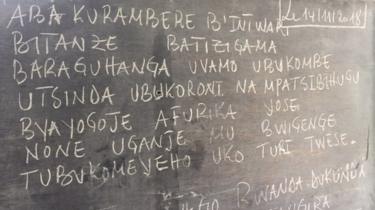 ABA KURAMBERE B'INTWARI
Le 14/11/2018
BITANZE BATIZIGAMA
BARAGUHANGA UVAMO UBUKOMBE
UTSINDA UBUKORONI NA MPATSIBIHUGU
BYAYOGOJE AFURIKA YOSE
NONE UGANJE MU BWIGENGE
TUBUKOMEYEHO UKO TURI TWESE.
RWANDA DUKUNDA